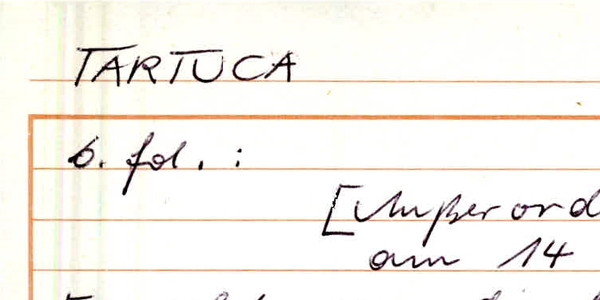 TARTUCA
6. fol. :
[Außerord
am 14